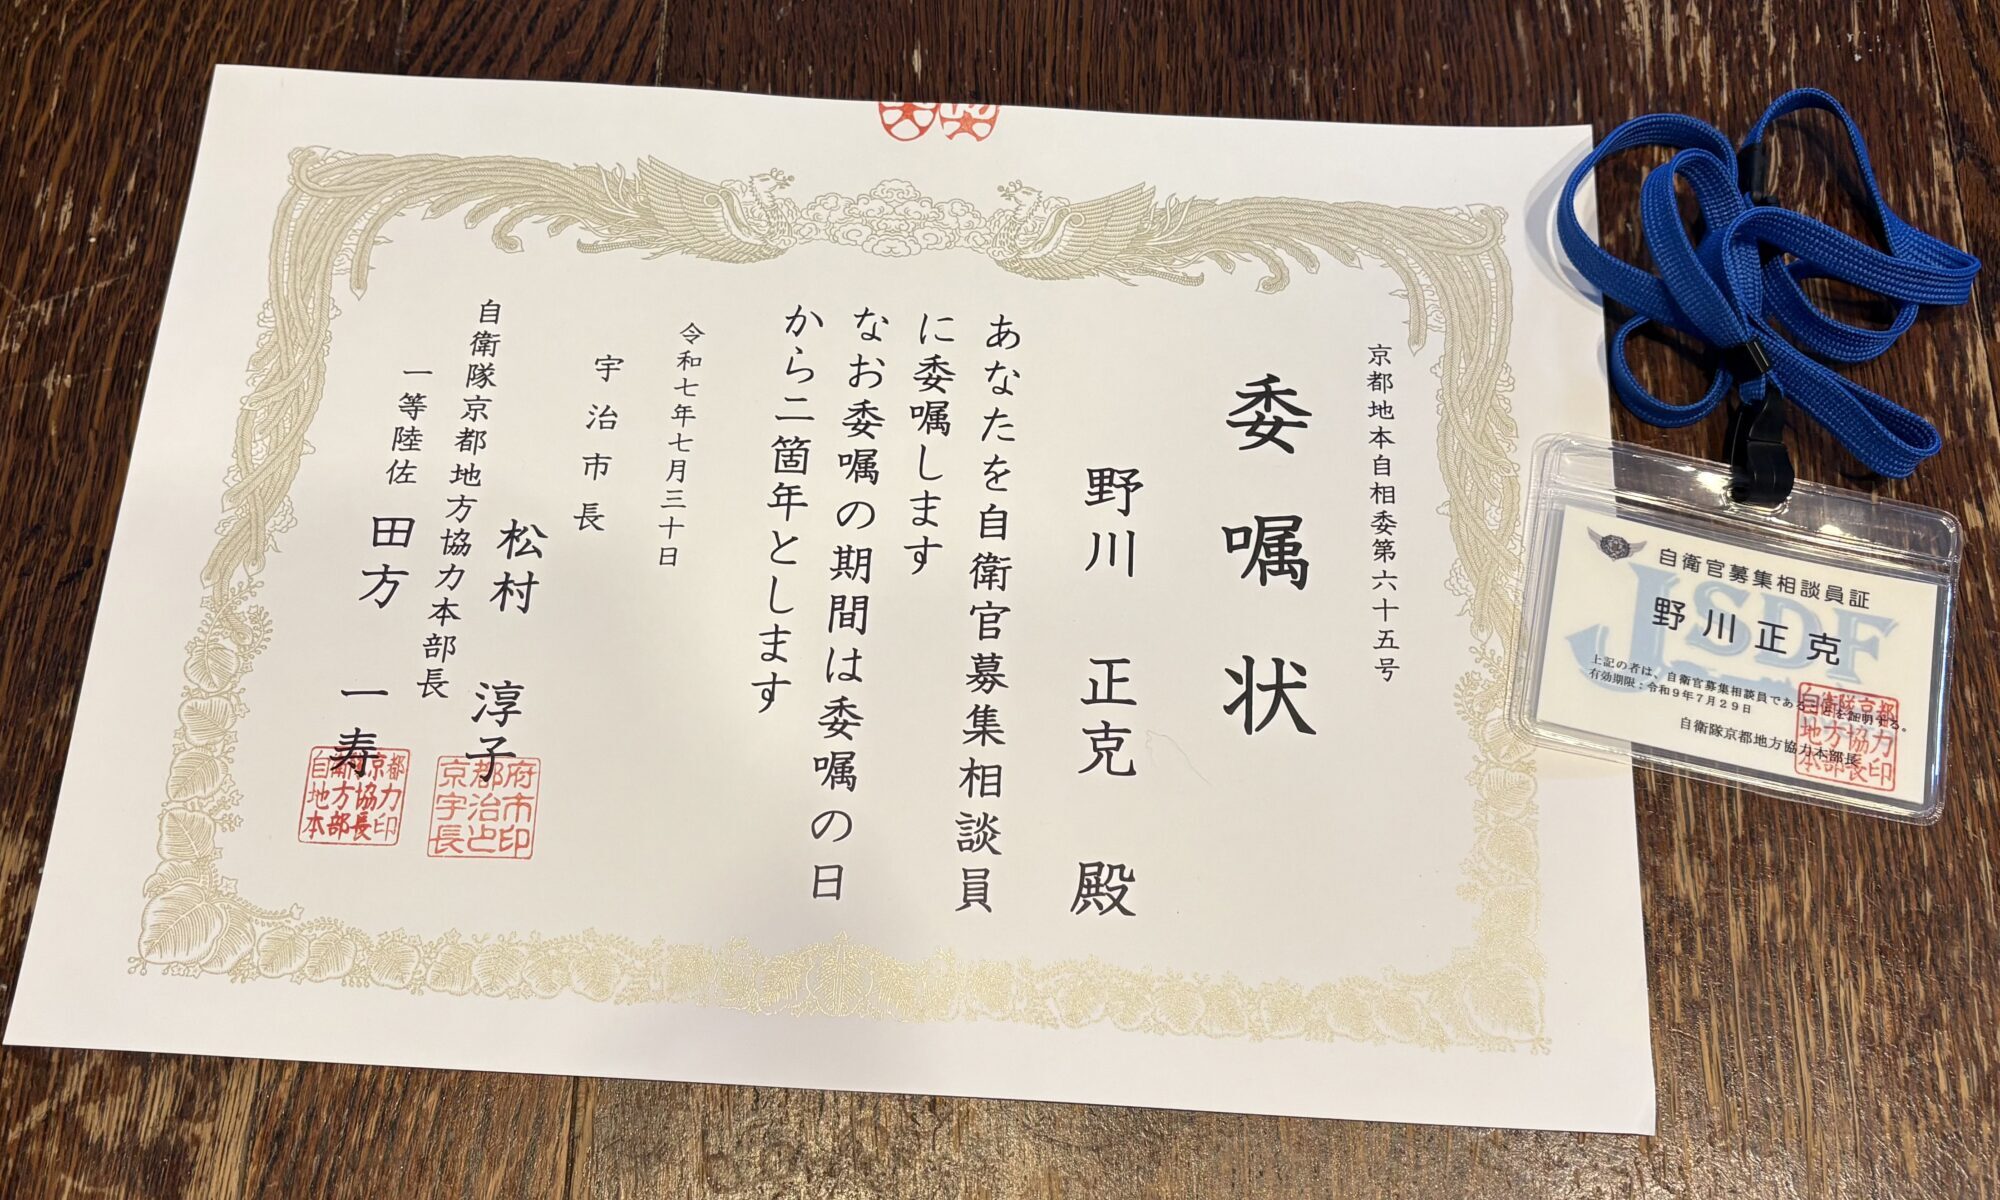 京都地本自相委第六十五号
委嘱状
野川 正克 殿
あなたを自衛官募集相談員
に委嘱します
なお委嘱の期間は委嘱の日
から二箇年とします
令和七年七月三十日
宇治市長
松村 淳子
京都府
宇治市
長之印
自衛隊京都地方協力本部長
一等陸佐 田方 一寿
自衛隊京都
地方協力
本部長印
自衛官募集相談員証
JSDF
野川正克
上記の者は、自衛官募集相談員であることを証明する。
有効期限：令和9年7月29日
自衛隊京都地方協力本部長
自衛隊京都
地方協力
本部長印